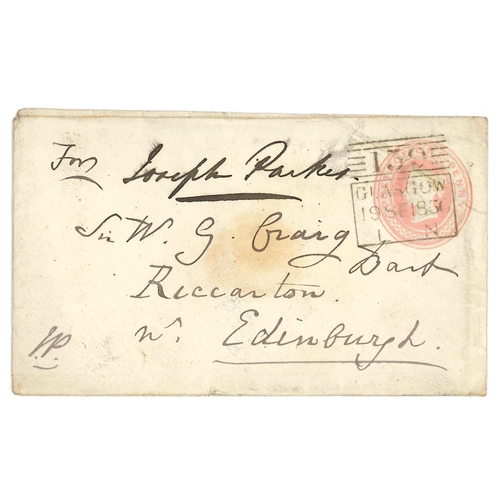 For Joseph Parker.
Sir W. G. Craig
Bart
Riccarton.
Nr. Edinburgh.
JP.
159
GLASGOW
19 SE 185
N